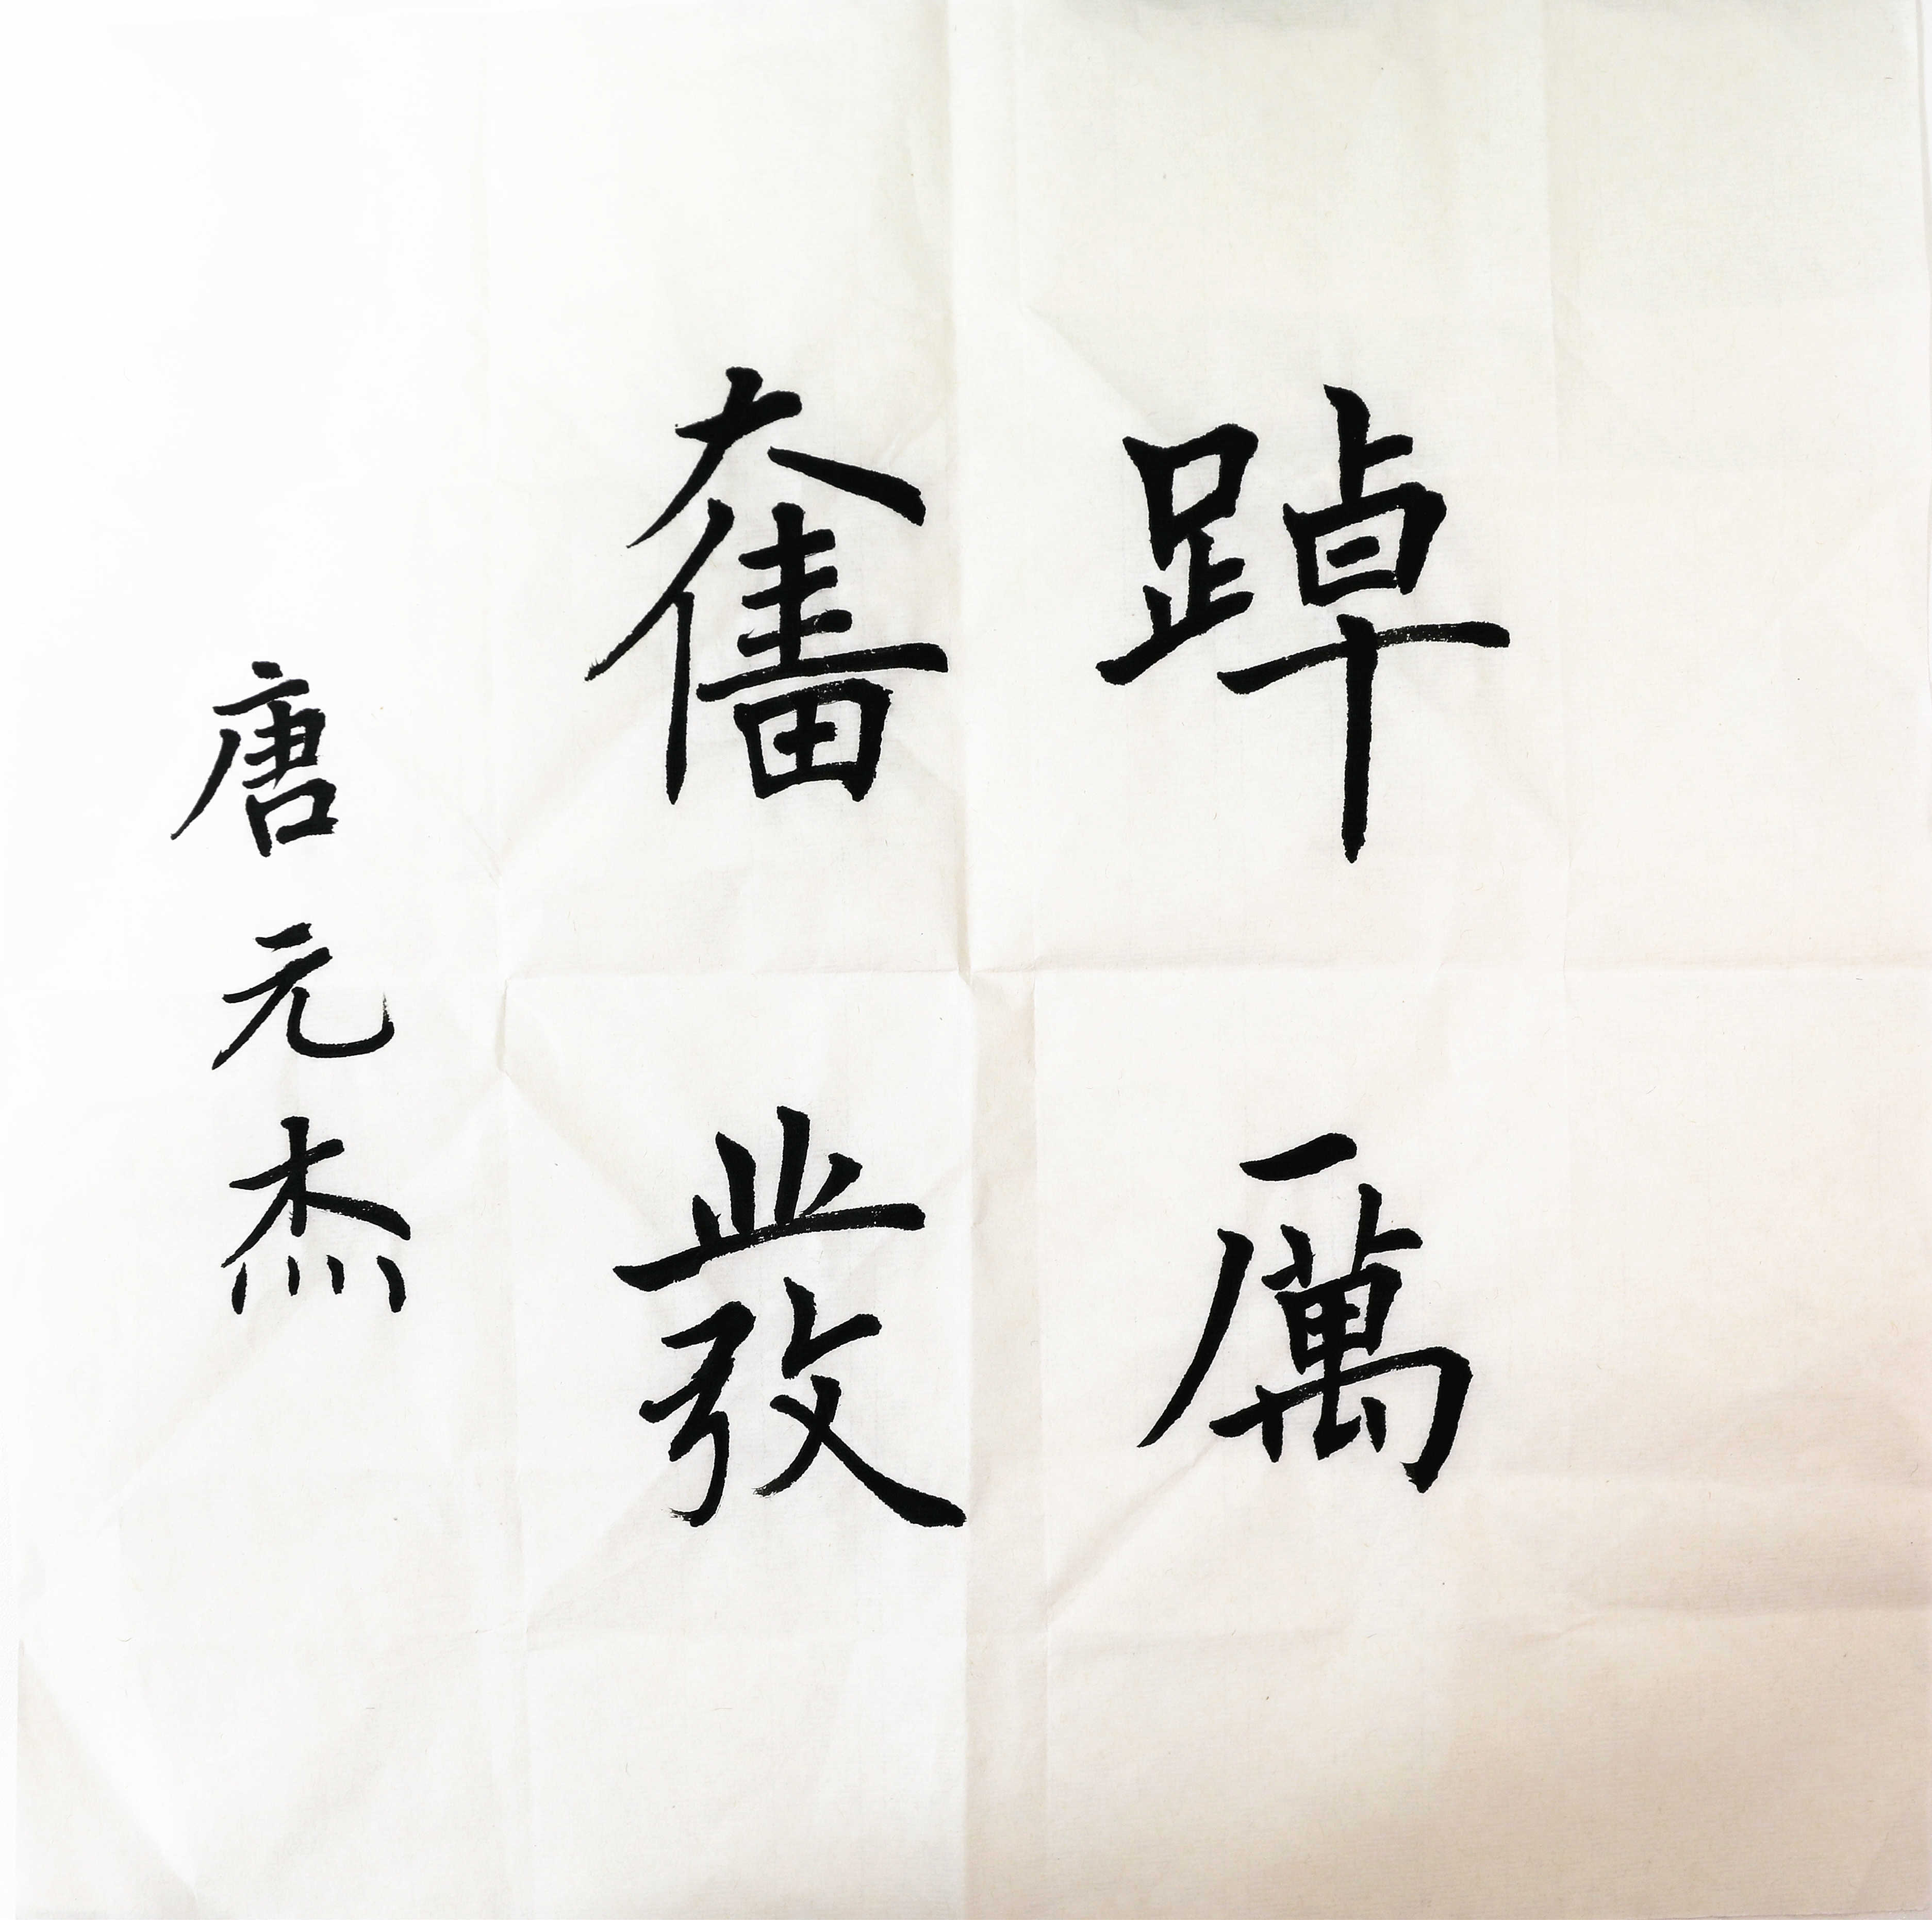 踔厲
奮發
唐元杰